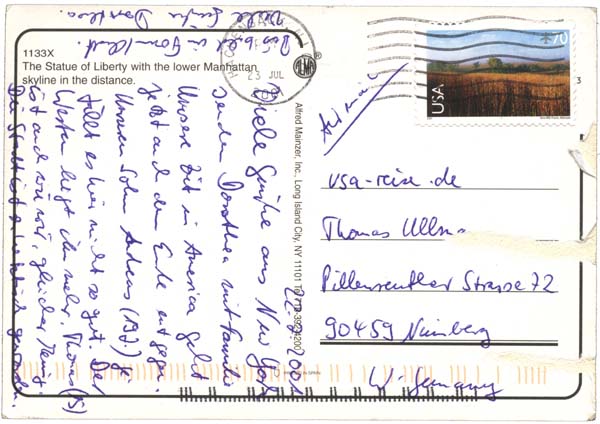 1133X
The Statue of Liberty with the lower Manhattan
skyline in the distance.
HACKENSACK
23 JUL
ALMA
®
70
USA
Air mail
Alfred Mainzer, Inc., Long Island City, NY 11101
22.7.2001
Viele Grüße aus New York
senden Dorothea mit Familie
Unsere Zeit in America geht
jetzt auch dem Ende entgegen.
Unserem Sohn Andreas (12J)
fällt es hier nicht so gut. Der
Westen liegt ihm mehr. Thomas (15)
ist auch wie wir, gleicher Meinung.
Die Stadt ist
Bis bald in
Viele Grüße
Dorothea
usa-reise.de
Thomas Ullm
Pillenreuther Strasse 72
90459 Nürnberg
W-Germany